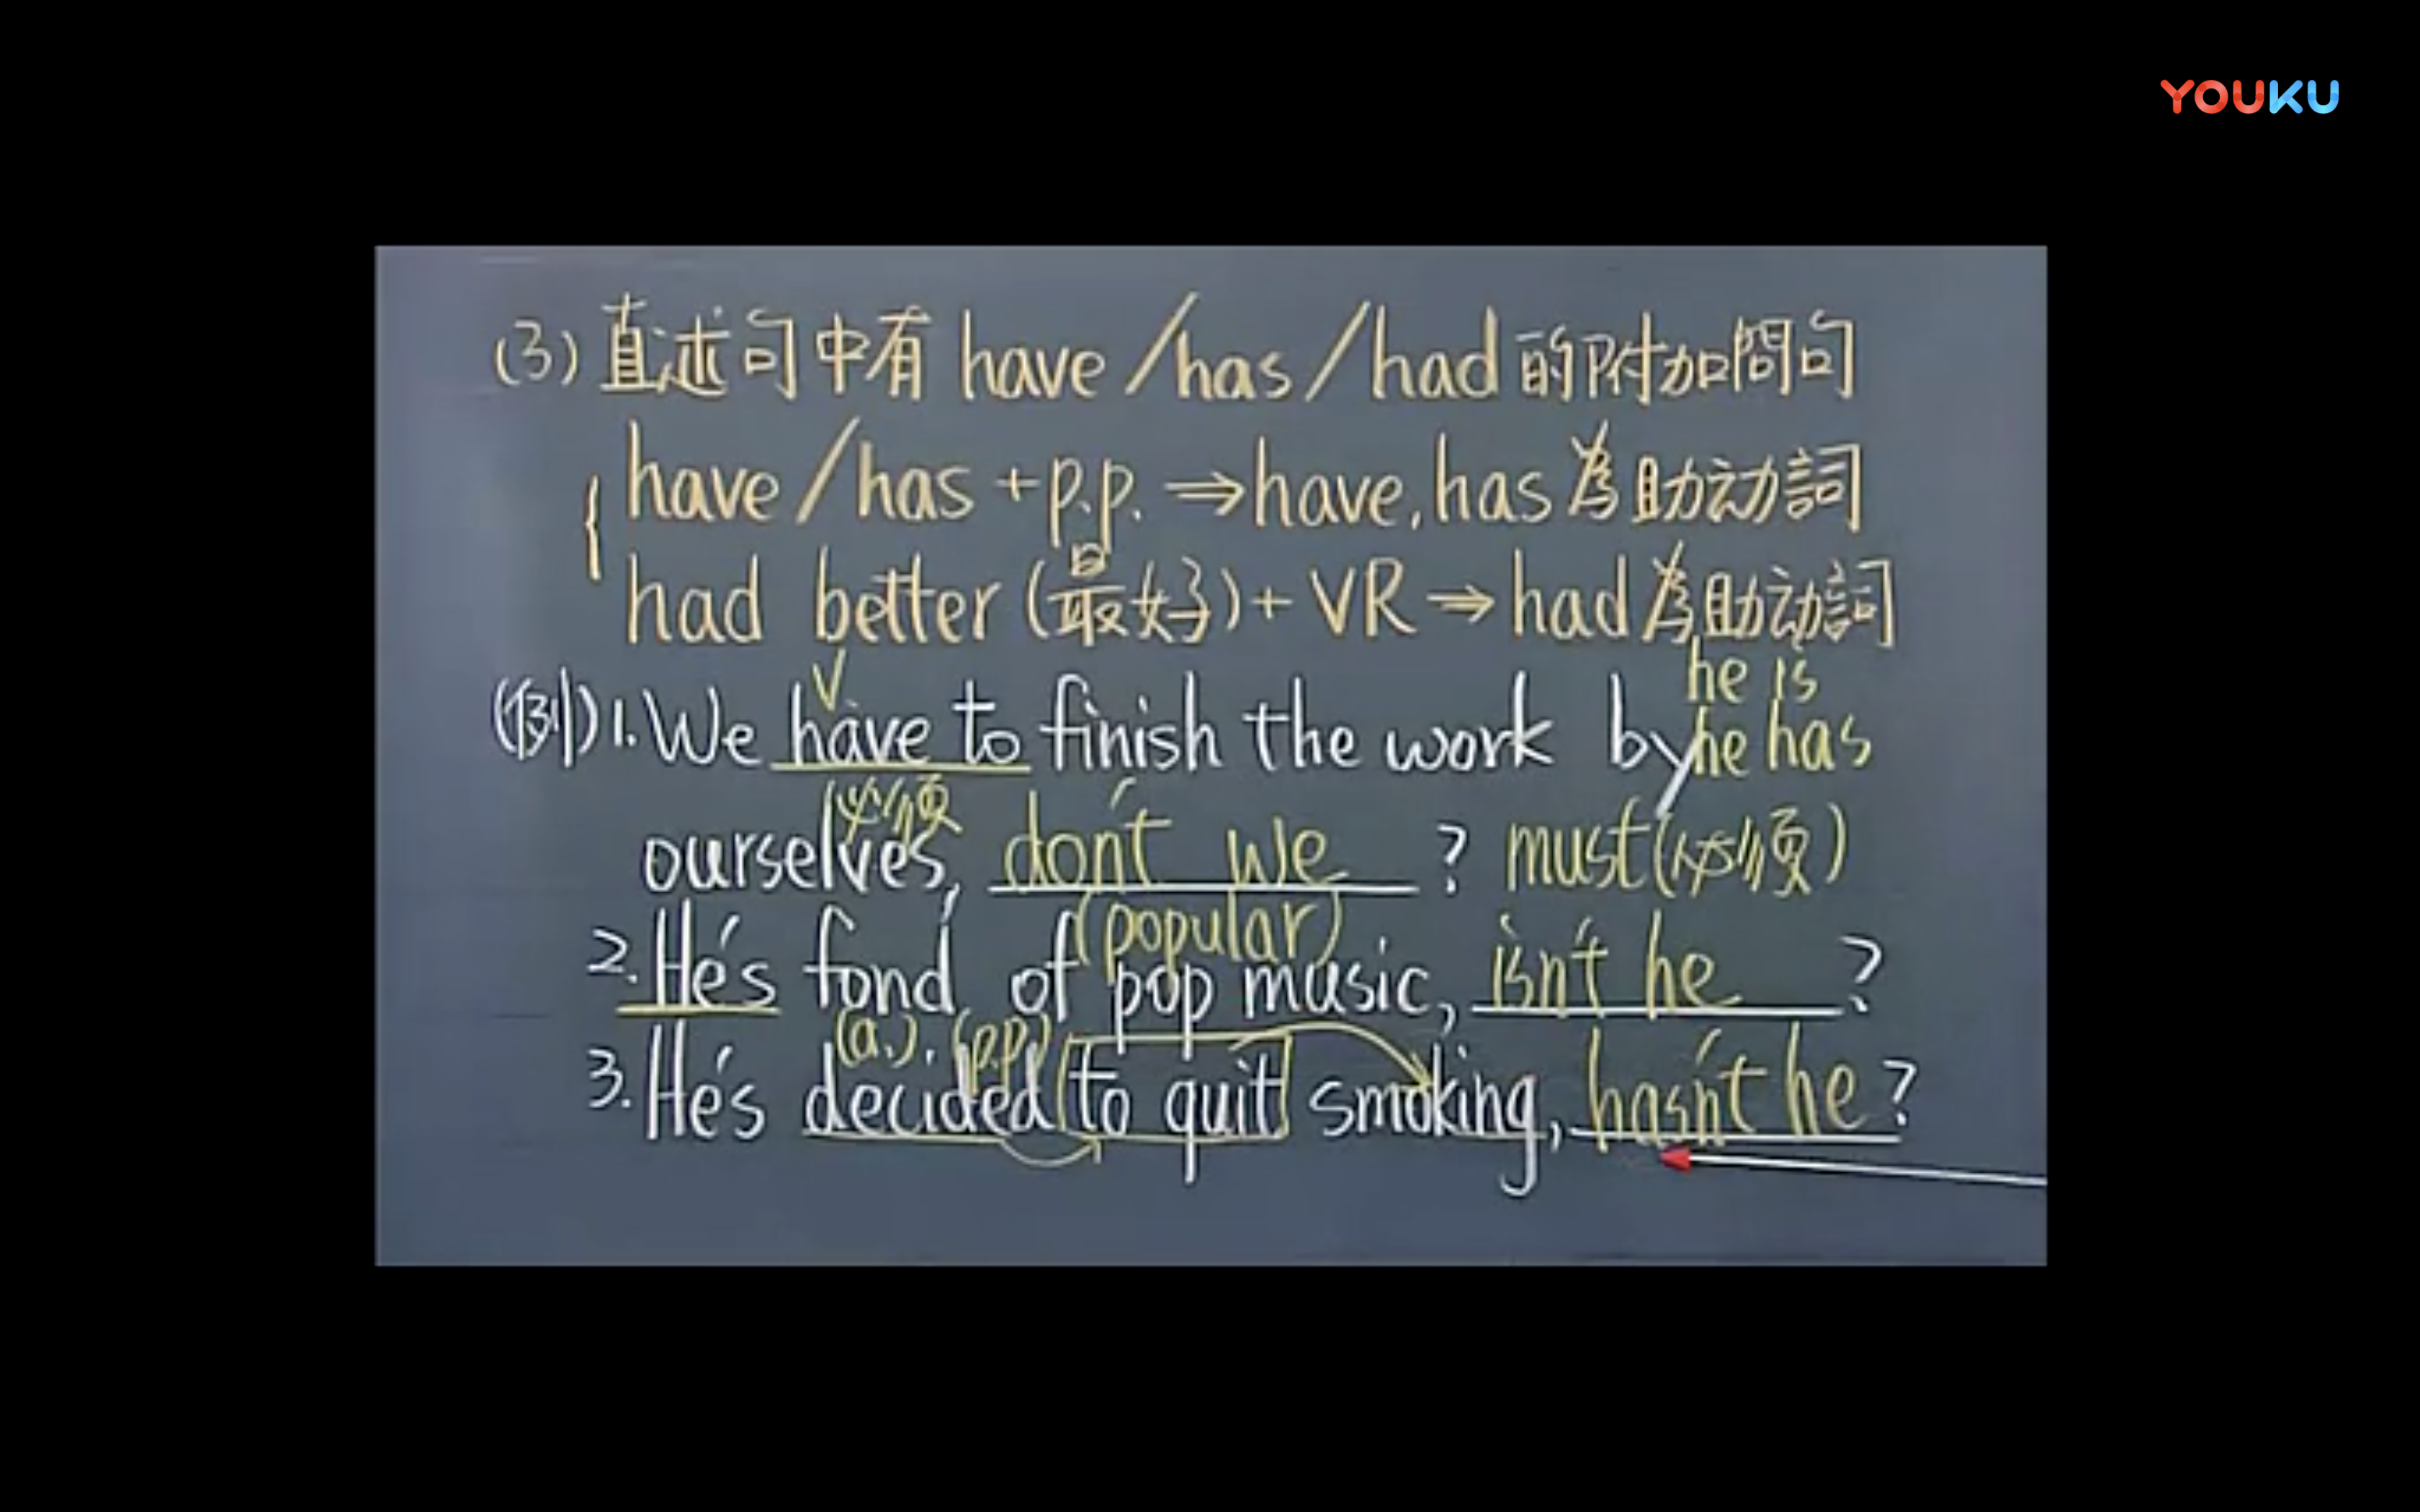 YOUKU
(3) 直述句中有 have/has/had 的附加問句
have/has + p.p. ⇒ have, has 為助动詞
had better (最好) + VR ⇒ had 為助动詞
he is
V
(例) 1. We have to finish the work by he has
必須
ourselves, don't we ? must (必須)
(popular)
2. He's fond of pop music, isn't he ?
(a.) (p.p)
3. He's decided to quit smoking, hasn't he ?